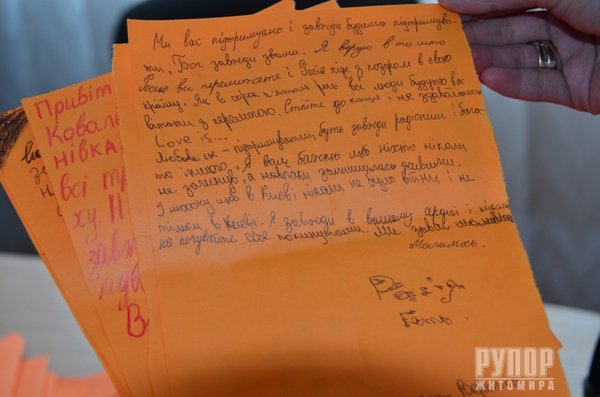 Ми вас підтримуємо і завжди будемо підтримува-
ти, Бог завжди з вами. Я вірую в то што
ви переможете і Росія піде з позором в свою
країну. Як в сорок п'ятом році всі люди будуть вас
вітати з перемогою. Стійте до кінця і не здавайтесь
Love is...
Любов це - підтримувати, буть завжди радісним і бага-
то іншого. Я вам бажаю шоб ніхто ніколи
не загинув, а навпаки залишились живими.
І шоб в Києві ніколи не було війни і не
тільки в Києві. Я завжди в вашому серці і ніколи
не почувайте себе покинутими. Ми завжди
Молимось.
Катя
Привіт
Ковале
нівка.
всі
ху. П
завж
В
РУПОР
ЖИТОМИРА